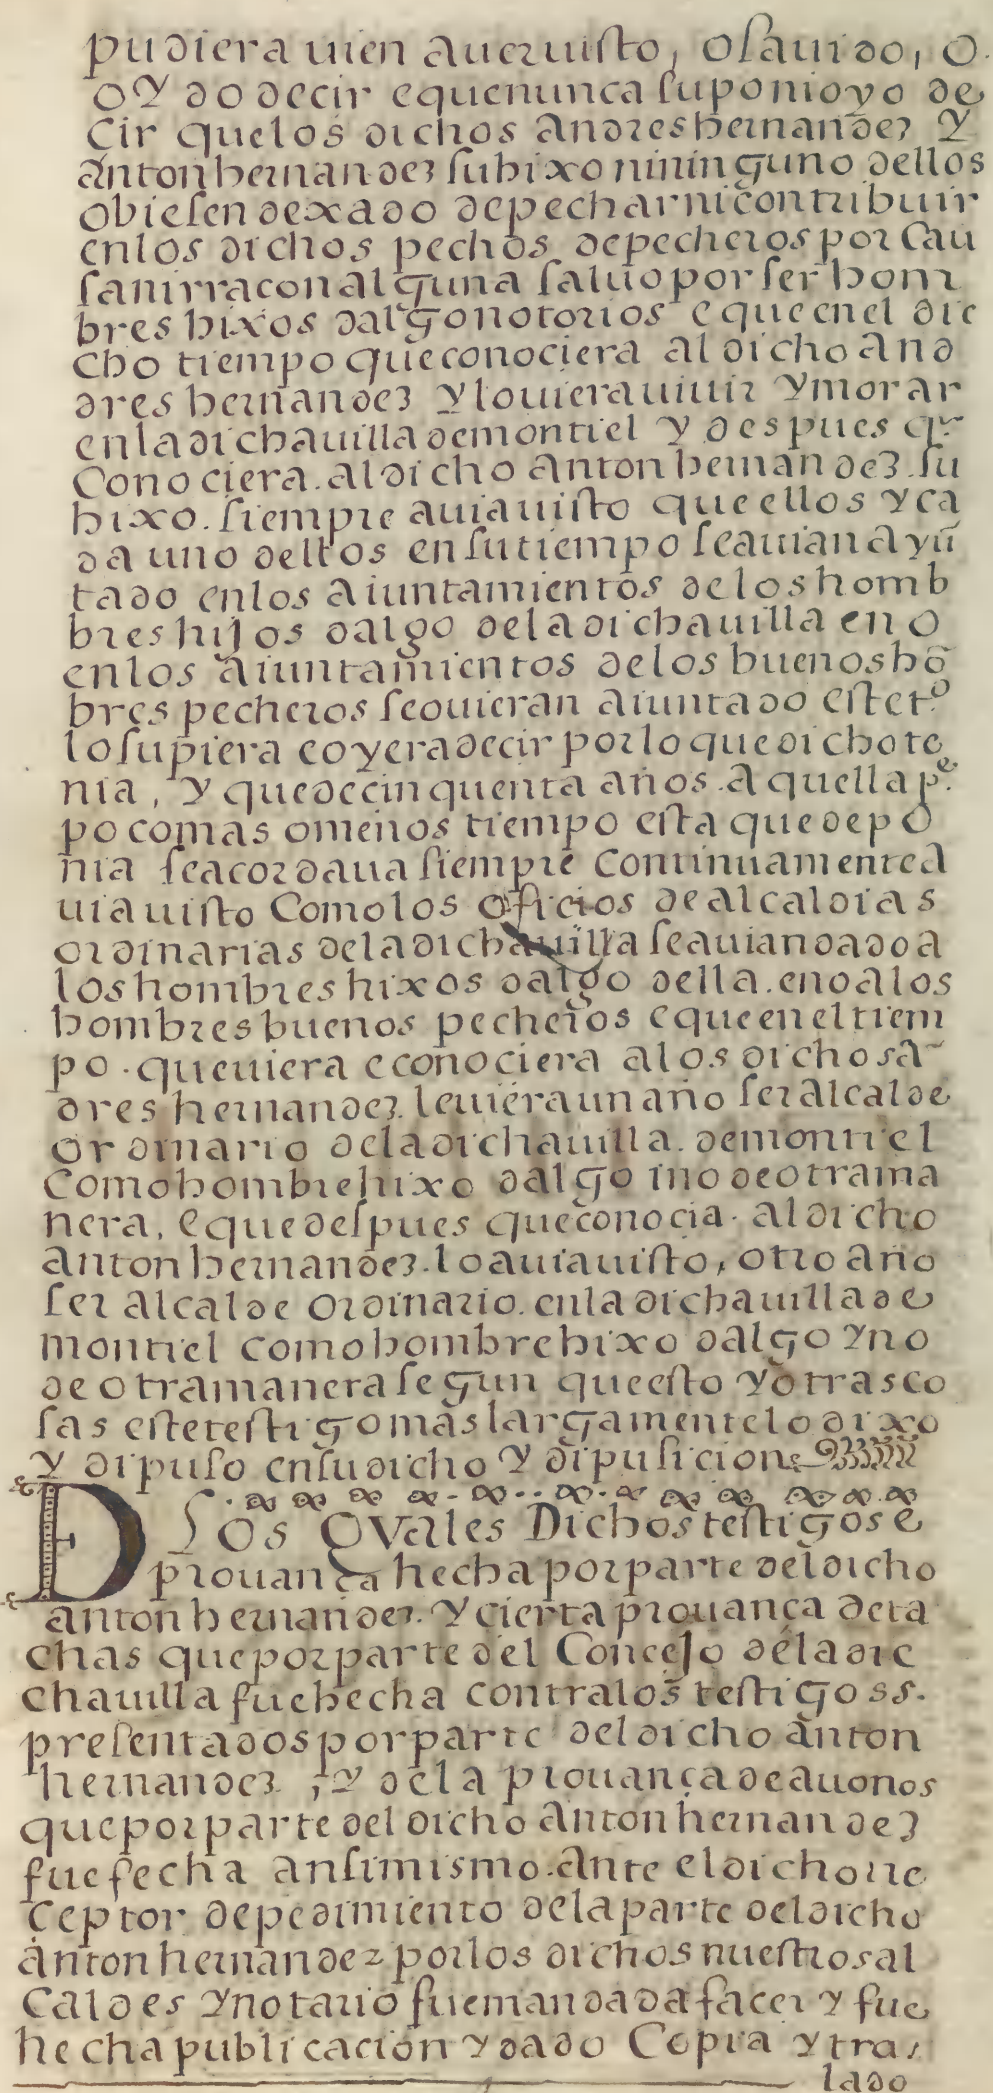 pudiera uien auer uisto, o sauido, o
oydo decir e que nunca supo ni oyo de
cir que los dichos andres hernandez y
anton hernandez su hixo ni ninguno dellos
obiesen dexado de pechar ni contribuir
en los dichos pechos de pecheros por cau
sa ni rracon alguna saluo por ser hom
bres hixos dalgo notorios e que en el dic
cho tiempo que conociera al dicho and
dres hernandez y lo uiera uiuir y morar
en la dicha uilla de montiel y despues q̃
conociera. al dicho anton hernandez. su
hixo. siempre auia uisto que ellos y ca
da uno dellos en su tiempo se auian ayũ
tado en los aiuntamientos de los homb
bres hijos dalgo de la dicha uilla e no
en los aiuntamientos de los buenos hõ
bres pecheros se ouieran aiuntado este tº
lo supiera e oyera decir por lo que dicho te
nia, y que de cinquenta años. a quella pe.
poco mas o menos tiempo esta que depo
nia se acordaua siempre continuamente a
uia uisto como los oficios de alcaldias
ordinarias de la dicha uilla se auian dado a
los hombres hixos dalgo della. e no a los
hombres buenos pecheros e que en el tiem
po. que uiera e conociera a los dichos ã
dres hernandez. le uiera un año ser alcalde
ordinario de la dicha uilla. de montiel
como hombre hixo dalgo i no de otra ma
nera, e que despues que conocia. al dicho
anton hernandez. lo auia uisto, otro año
ser alcalde ordinario. en la dicha uilla de
montiel como hombre hixo dalgo y no
de otra manera segun que esto y otras co
sas este testigo mas largamente lo dixo
y dipuso en su dicho y dipusicion
De los Quales Dichos testigos e
prouança hecha por parte del dicho
anton hernandez. y cierta prouança de ta
chas que por parte del Concejo de la dic
cha uilla fue hecha contra los testigos s.
presentados por parte del dicho anton
hernandez, y de la prouança de auonos
que por parte del dicho anton hernandez
fue fecha ansimismo. ante el dicho rre
ceptor de pedimiento de la parte del dicho
anton hernandez por los dichos nuestros al
caldes y notario fue mandada facer y fue
hecha publicacion y dado Copia y tras
lado